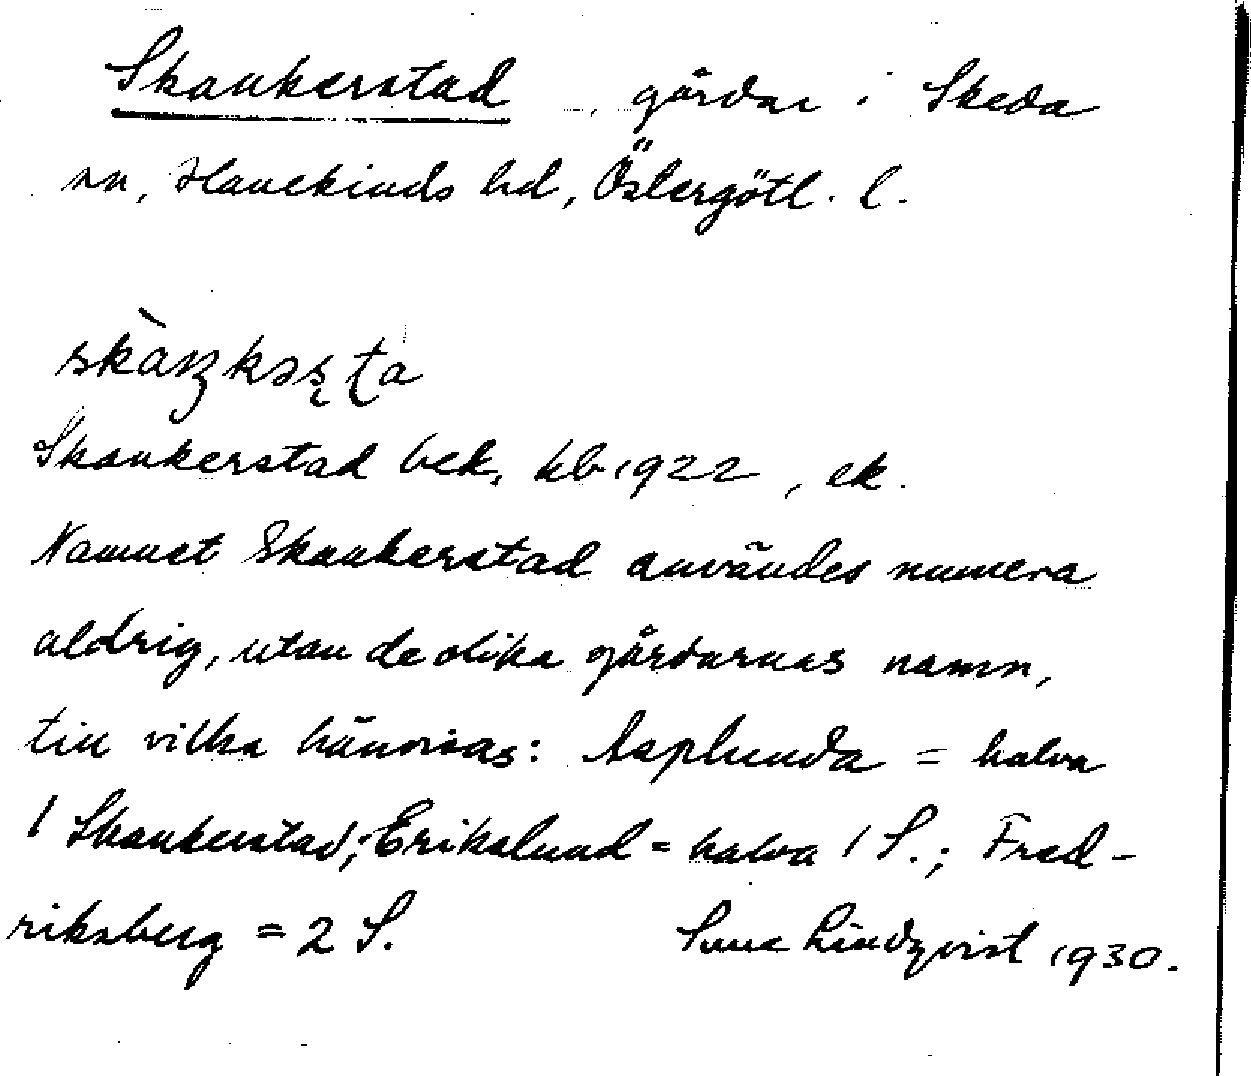 Skankerstad gårdar i Skeda
sn, Hanekinds hd, Östergötl. l.
skàŋkəʂʈa
Skankerstad bek. kb 1922, ek.
Namnet Skankerstad användes numera
aldrig, utan de olika gårdarnas namn,
till vilka hänvisas: Asplunda = halva
1 Skankerstad; Erikslund = halva 1 S.; Fred-
riksberg = 2 S. Sune Lindqvist 1930.